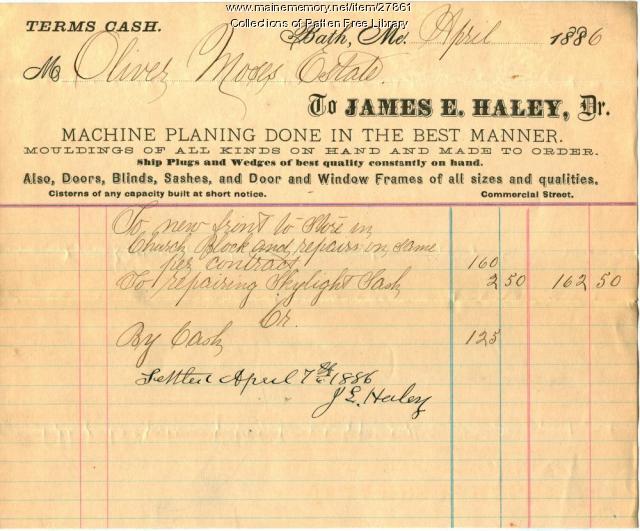 www.mainememory.net/item/27861
Collections of Patten Free Library
TERMS CASH.
Bath, Me. April 1886
M Oliver Moses Estate.
To JAMES E. HALEY, Dr.
MACHINE PLANING DONE IN THE BEST MANNER.
MOULDINGS OF ALL KINDS ON HAND AND MADE TO ORDER.
Ship Plugs and Wedges of best quality constantly on hand.
Also, Doors, Blinds, Sashes, and Door and Window Frames of all sizes and qualities.
Cisterns of any capacity built at short notice. Commercial Street.
To new front to Store in
Church Block and repairs on same
per contract 160
To repairing Skylight Sash 2 50 162 50
Cr.
By Cash 125
Settled April 7th 1886
J E. Haley